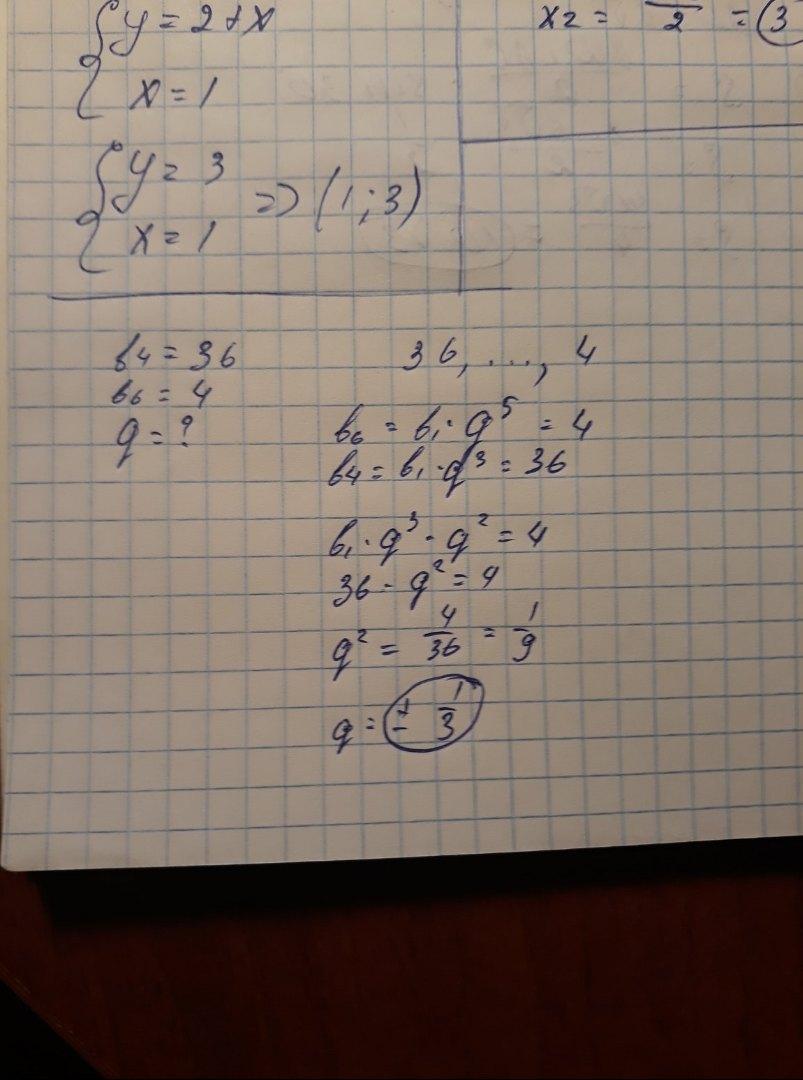 y = 2 + x
x = 1
x2 = — / 2 = 3
y = 3
x = 1
=> (1; 3)
b4 = 36
b6 = 4
q = ?
36, ..., 4
b6 = b1 · q^5 = 4
b4 = b1 · q^3 = 36
b1 · q^3 · q^2 = 4
36 · q^2 = 4
q^2 = 4/36 = 1/9
q = ± 1/3